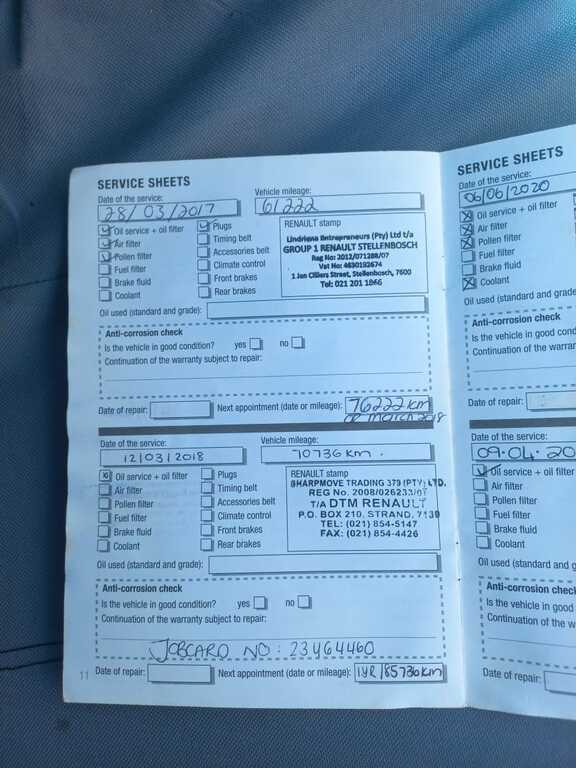 SERVICE SHEETS
Date of the service: Vehicle mileage:
28/03/2017 61222
Oil service + oil filter Plugs
Air filter Timing belt
Pollen filter Accessories belt
Fuel filter Climate control
Brake fluid Front brakes
Coolant Rear brakes
RENAULT stamp
Lindriena Entrepreneurs (Pty) Ltd t/a
GROUP 1 RENAULT STELLENBOSCH
Reg No: 2012/071288/07
Vat No: 4630192674
1 Jan Cilliers Street, Stellenbosch, 7600
Tel: 021 201 1866
Oil used (standard and grade):
Anti-corrosion check
Is the vehicle in good condition? yes no
Continuation of the warranty subject to repair:
Date of repair: Next appointment (date or mileage): 76222 km
OR MARCH 2018
Date of the service: Vehicle mileage:
12/03/2018 70736 km.
Oil service + oil filter Plugs
Air filter Timing belt
Pollen filter Accessories belt
Fuel filter Climate control
Brake fluid Front brakes
Coolant Rear brakes
RENAULT stamp
SHARPMOVE TRADING 379 (PTY) LTD.
REG No. 2008/026233/07
T/A DTM RENAULT
P.O. BOX 210, STRAND, 7139
TEL: (021) 854-5147
FAX: (021) 854-4426
Oil used (standard and grade):
Anti-corrosion check
Is the vehicle in good condition? yes no
Continuation of the warranty subject to repair:
JOBCARD NO: 23464460
11 Date of repair: Next appointment (date or mileage): 1YR/85736km
SERVICE SHEETS
Date of the service:
06/06/2020
Oil service + oil filter
Air filter
Pollen filter
Fuel filter
Brake fluid
Coolant
Oil used (standard and grade
Anti-corrosion check
Is the vehicle in good cond
Continuation of the warran
Date of repair:
Date of the service:
09.04.20
Oil service + oil filter
Air filter
Pollen filter
Fuel filter
Brake fluid
Coolant
Oil used (standard and g
Anti-corrosion chec
Is the vehicle in good
Continuation of the w
Date of repair: